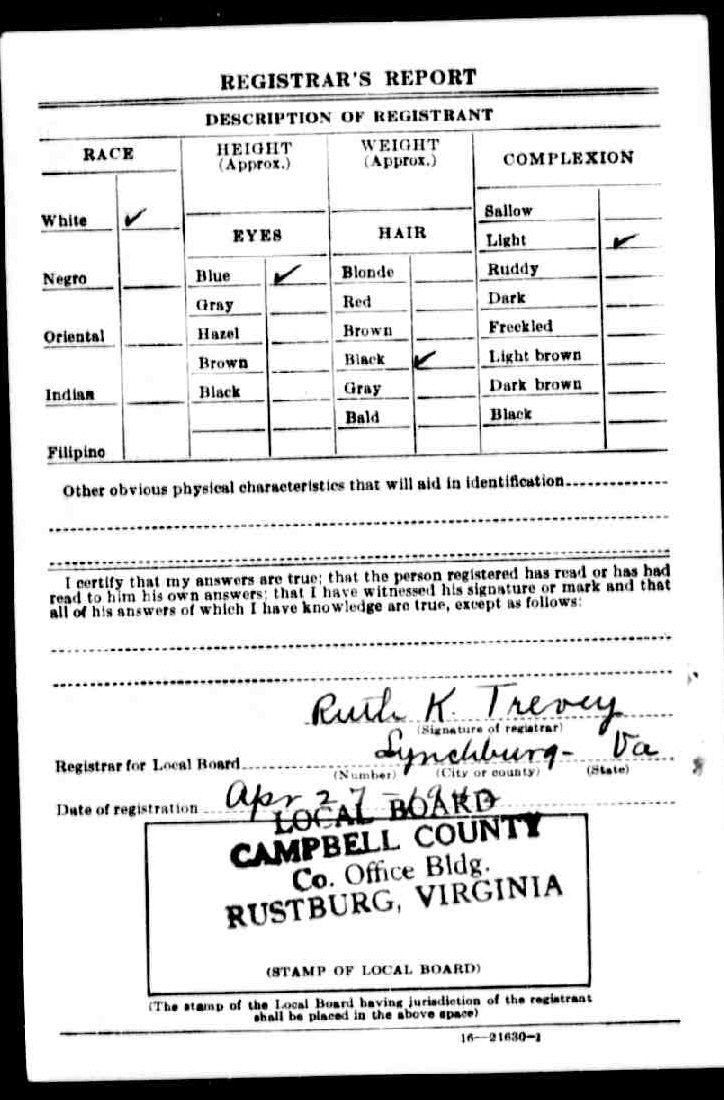 REGISTRAR'S REPORT
DESCRIPTION OF REGISTRANT
RACE
HEIGHT
(Approx.)
WEIGHT
(Approx.)
COMPLEXION
White ✓
Negro
Oriental
Indian
Filipino
EYES
Blue ✓
Gray
Hazel
Brown
Black
HAIR
Blonde
Red
Brown
Black ✓
Gray
Bald
Sallow
Light ✓
Ruddy
Dark
Freckled
Light brown
Dark brown
Black
Other obvious physical characteristics that will aid in identification
I certify that my answers are true; that the person registered has read or has had
read to him his own answers; that I have witnessed his signature or mark and that
all of his answers of which I have knowledge are true, except as follows:
Ruth K. Trevey
(Signature of registrar)
Registrar for Local Board Lynchburg - Va
(Number) (City or county) (State)
Date of registration Apr 27 -
LOCAL BOARD
CAMPBELL COUNTY
Co. Office Bldg.
RUSTBURG, VIRGINIA
(STAMP OF LOCAL BOARD)
(The stamp of the Local Board having jurisdiction of the registrant
shall be placed in the above space)
16—21630-1